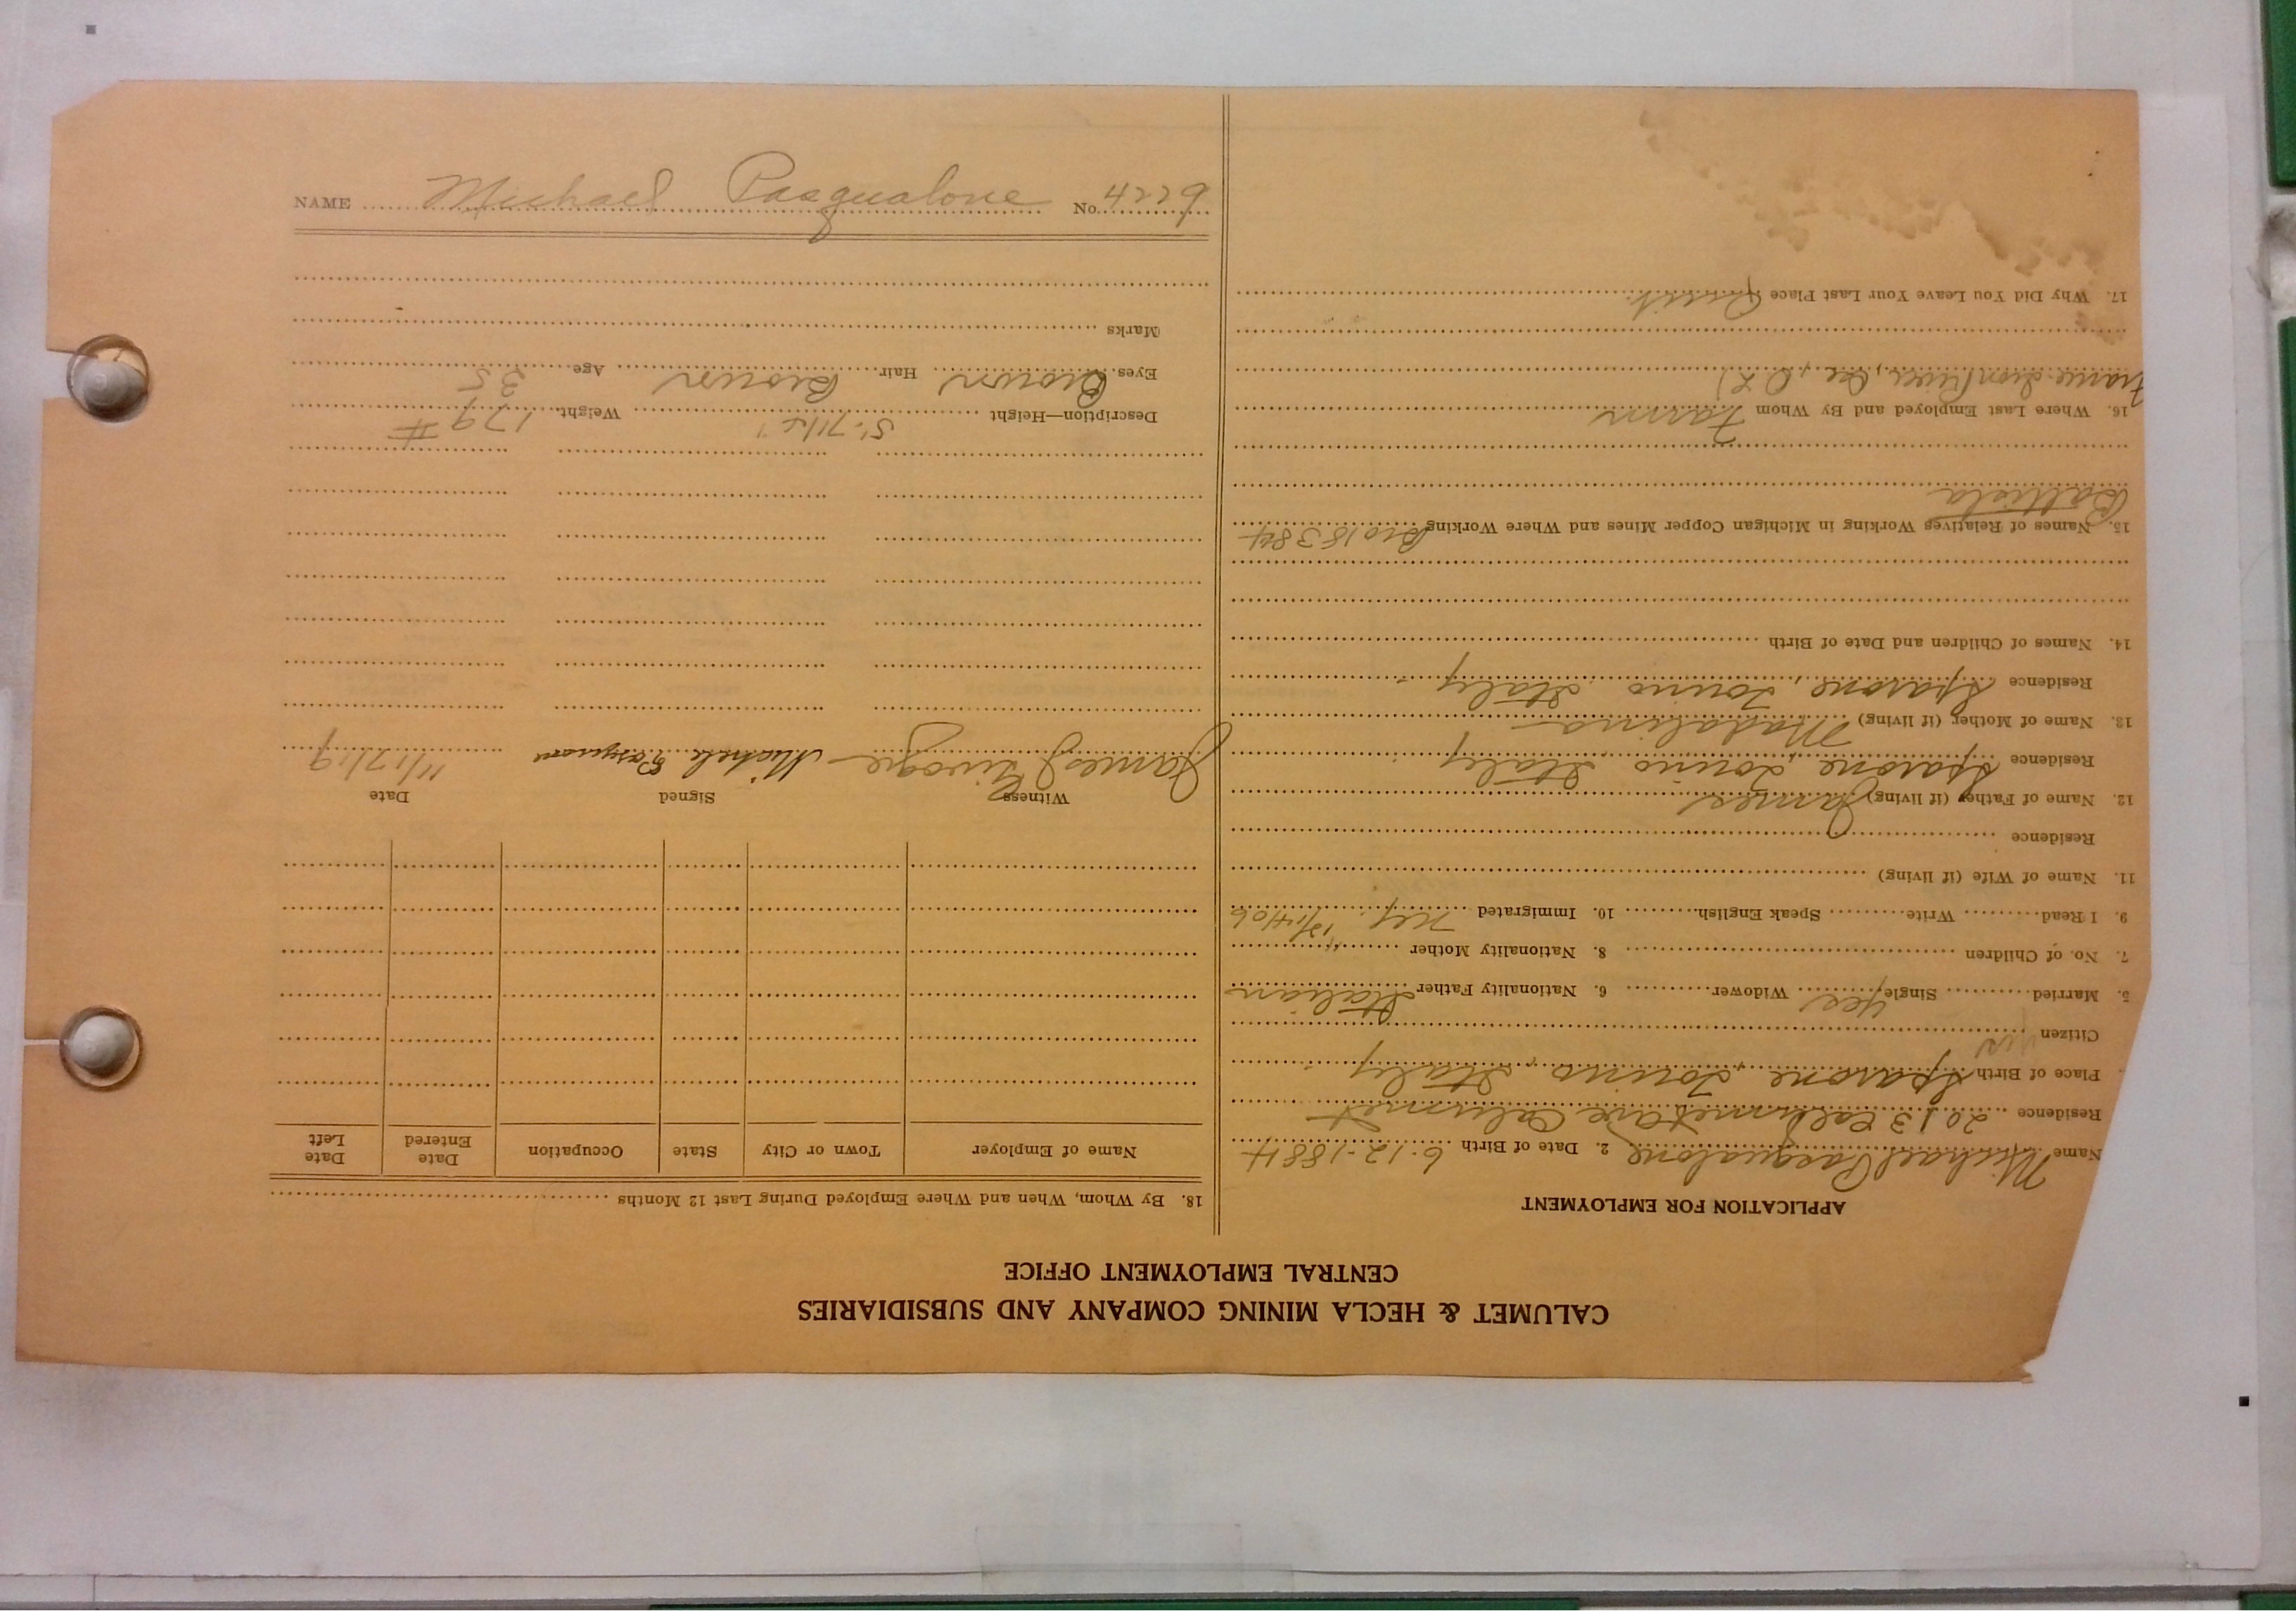 CALUMET & HECLA MINING COMPANY AND SUBSIDIARIES
CENTRAL EMPLOYMENT OFFICE
APPLICATION FOR EMPLOYMENT
Name Michael Pasqualone 2. Date of Birth 6-12-1884
Residence 2013 Calumet Ave Calumet
Place of Birth Sparone, Torino, Italy
Citizen yes
5. Married Single yes Widower 6. Nationality Father Italian
7. No. of Children 8. Nationality Mother "
9. I Read Write Speak English 10. Immigrated N.Y. 12/14/06
11. Name of Wife (if living)
Residence
12. Name of Father (if living) James
Residence Sparone, Torino, Italy
13. Name of Mother (if living) Madalina
Residence Sparone, Torino, Italy
14. Names of Children and Date of Birth
15. Names of Relatives Working in Michigan Copper Mines and Where Working Bro 18384
Battista
16. Where Last Employed and By Whom Farm
17. Why Did You Leave Your Last Place Quit
18. By Whom, When and Where Employed During Last 12 Months
Name of Employer Town or City State Occupation Date Entered Date Left
Witness Signed Date
James Michele 11/17/19
Description—Height 5' 7 1/2" Weight 179 #
Eyes Brown Hair Brown Age 35
Marks
NAME Michael Pasqualone No. 4229